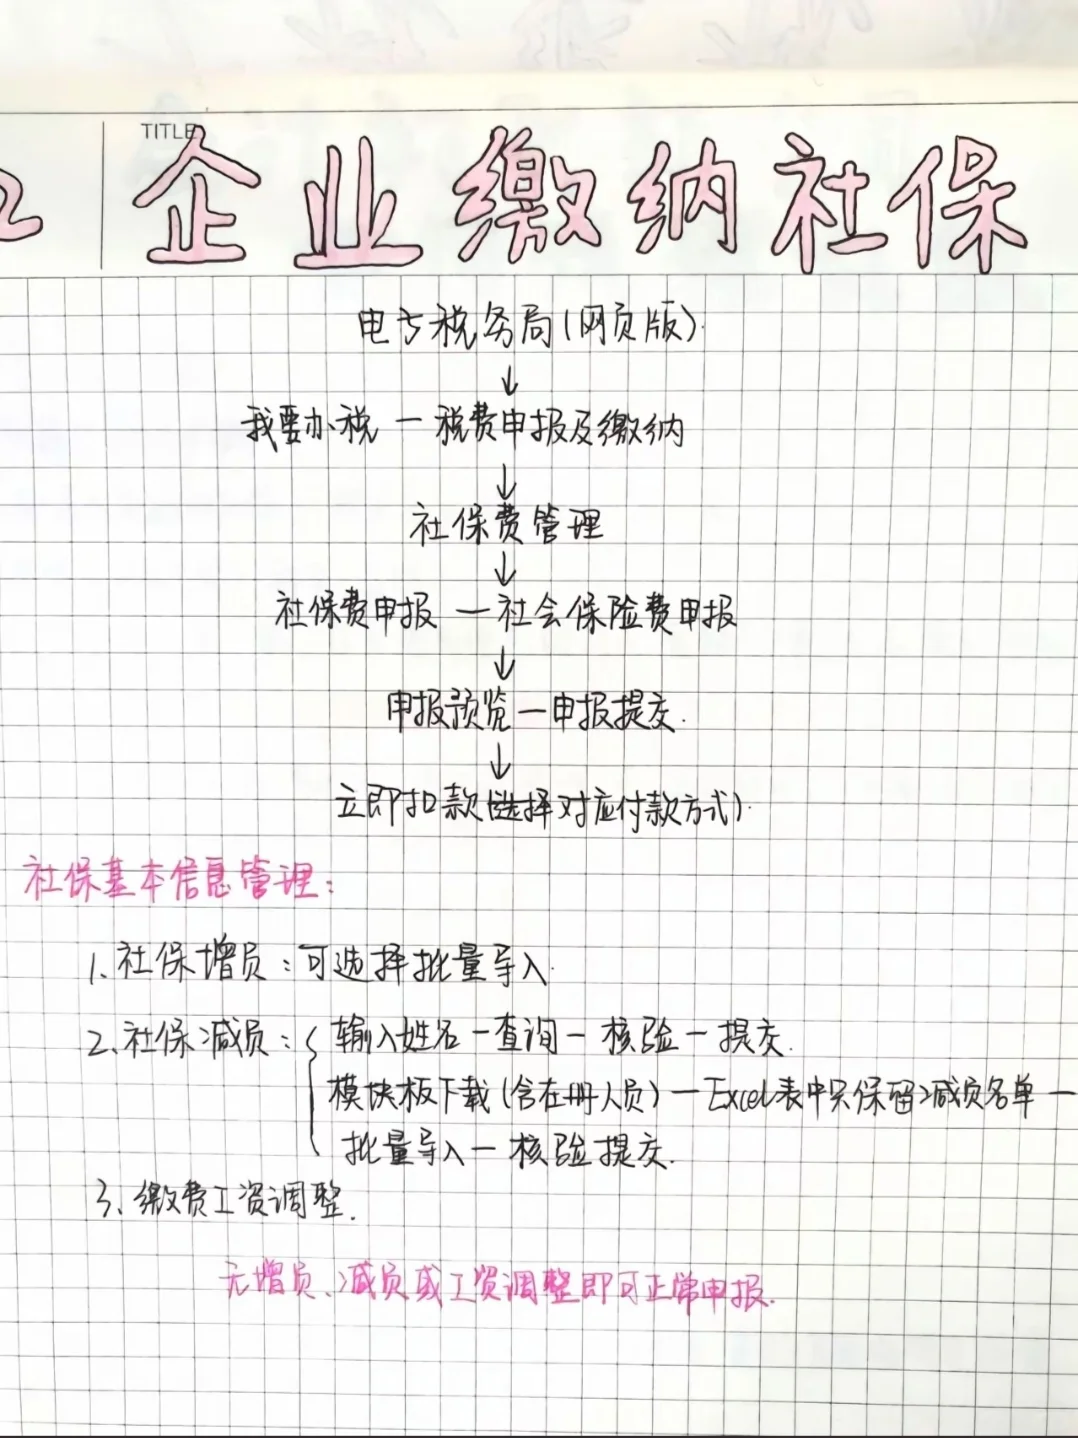 TITLE
企业缴纳社保
电子税务局(网页版)
↓
我要办税 — 税费申报及缴纳
↓
社保费管理
↓
社保费申报 — 社会保险费申报
↓
申报预览 — 申报提交.
↓
立即扣款(选择对应付款方式).
社保基本信息管理:
1、社保增员:可选择批量导入.
2、社保减员:{输入姓名 — 查询 — 核验 — 提交.
模块板下载(含在册人员) — Excel表中只保留减员名单 —
批量导入 — 核验提交.
3、缴费工资调整.
无增员、减员或工资调整即可正常申报.